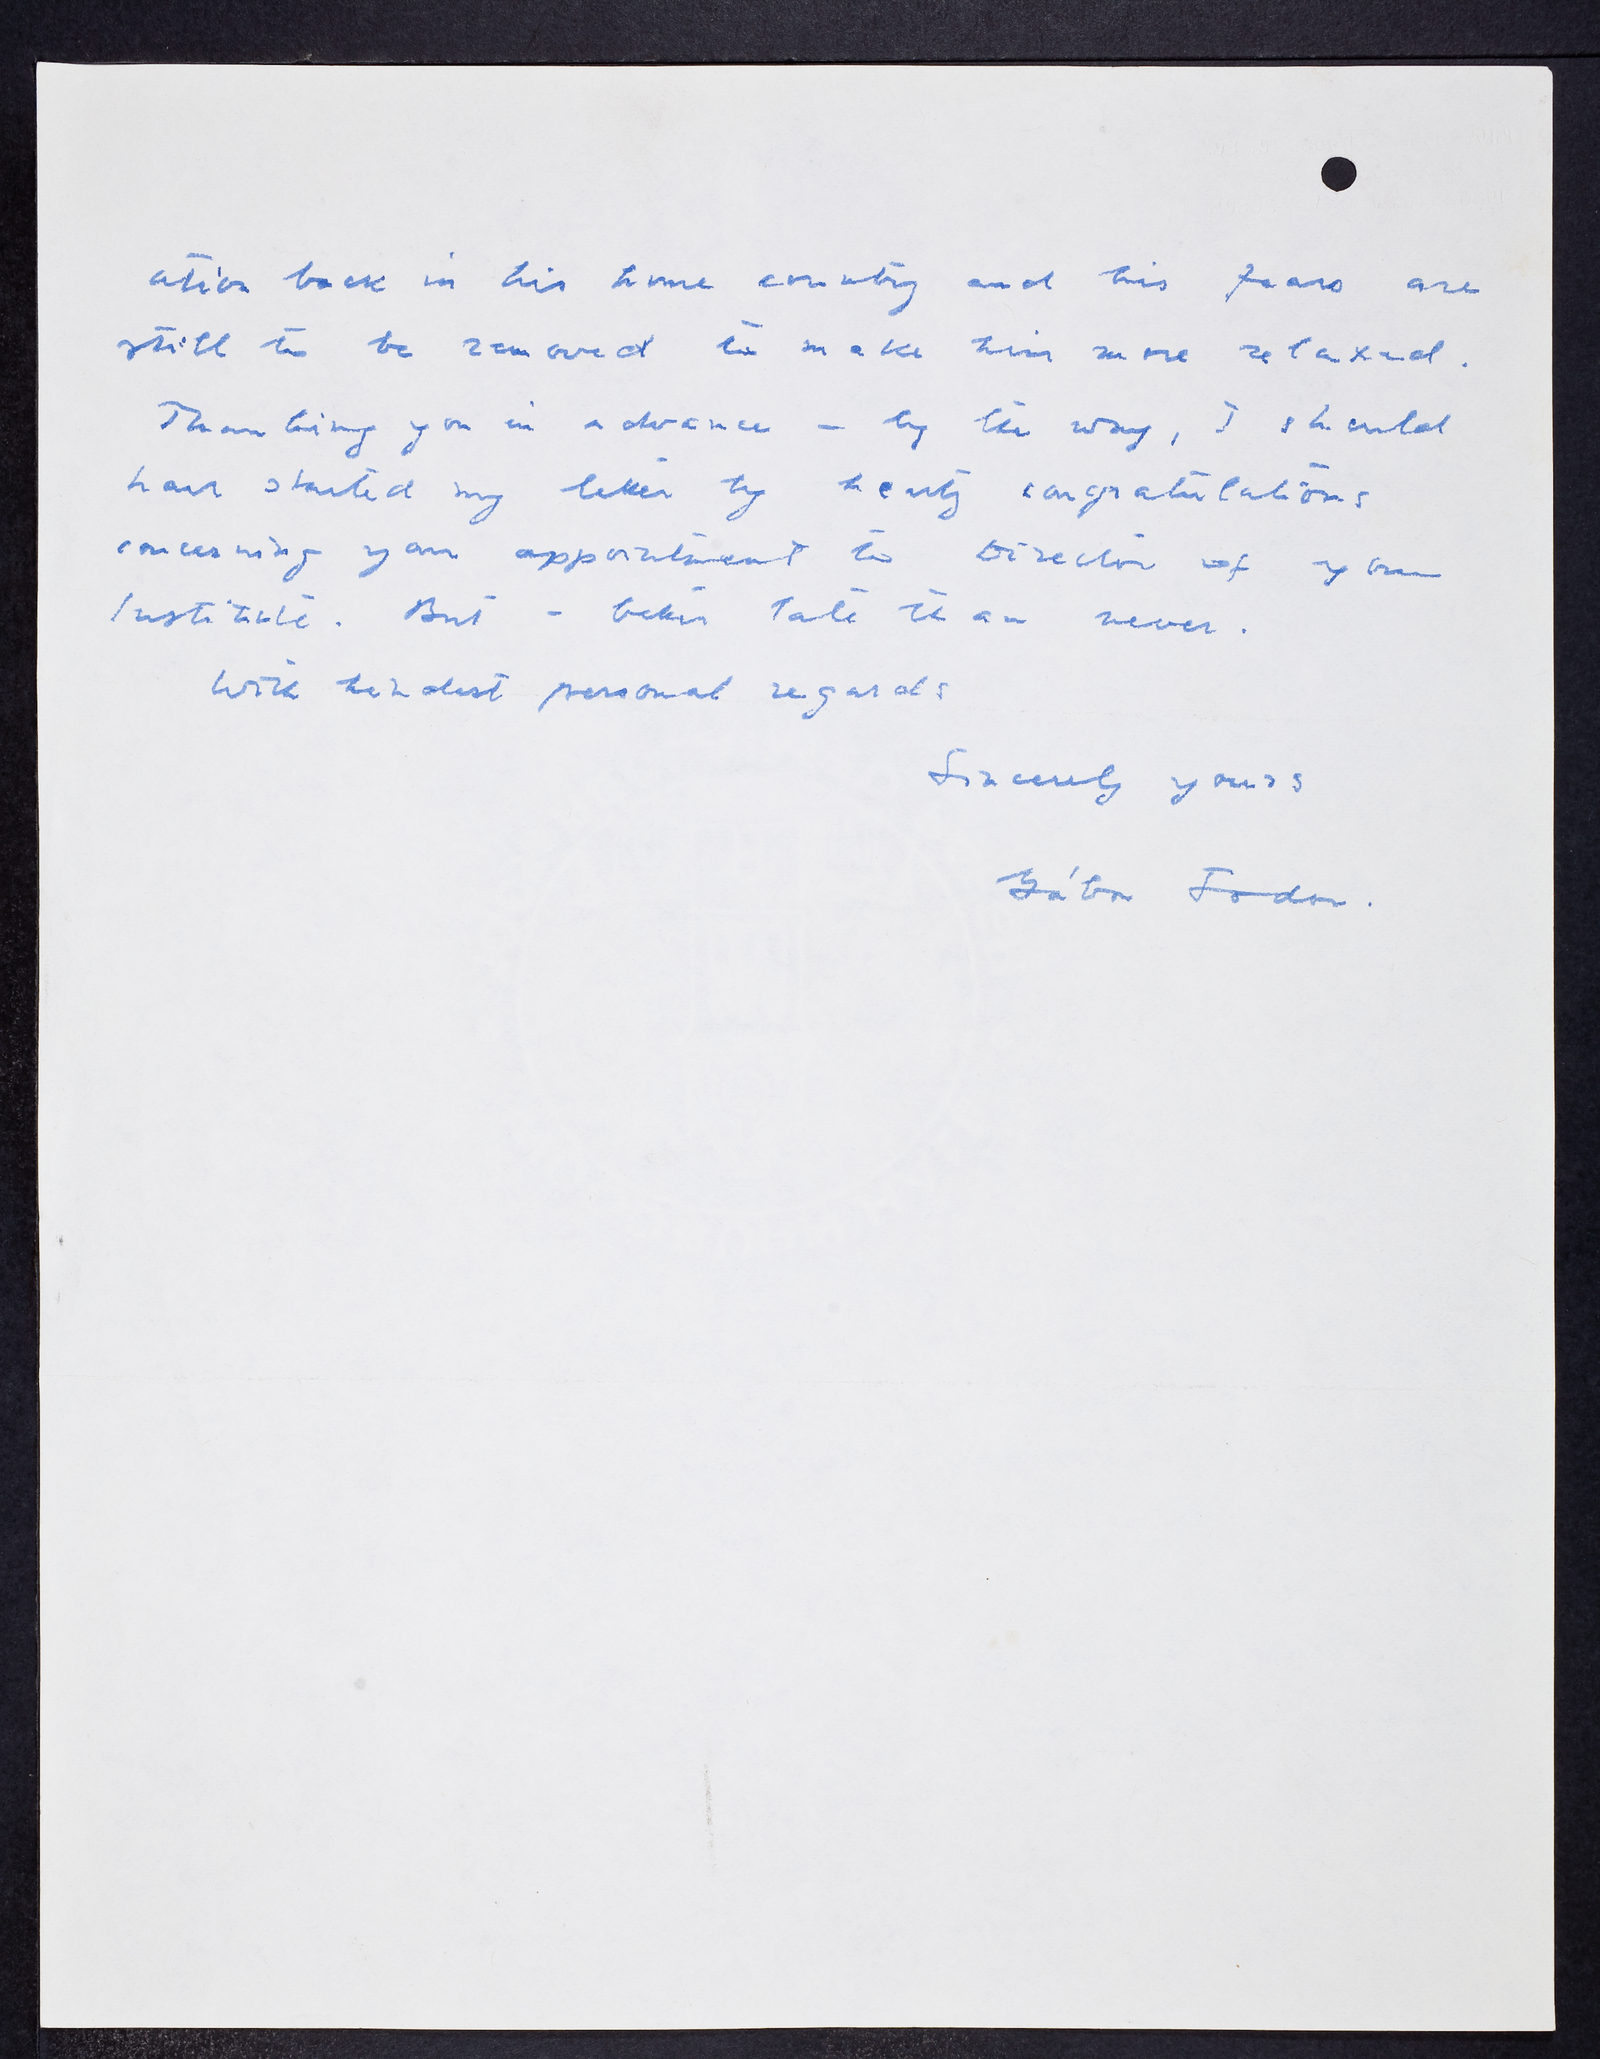 ation back in his home country and his fears are
still to be removed to make him more relaxed.
Thanking you in advance – by the way, I should
have started my letter by hearty congratulations
concerning your appointment to Director of your
Institute. But – better late than never.
With kindest personal regards
Sincerely yours
Gábor Fodor.